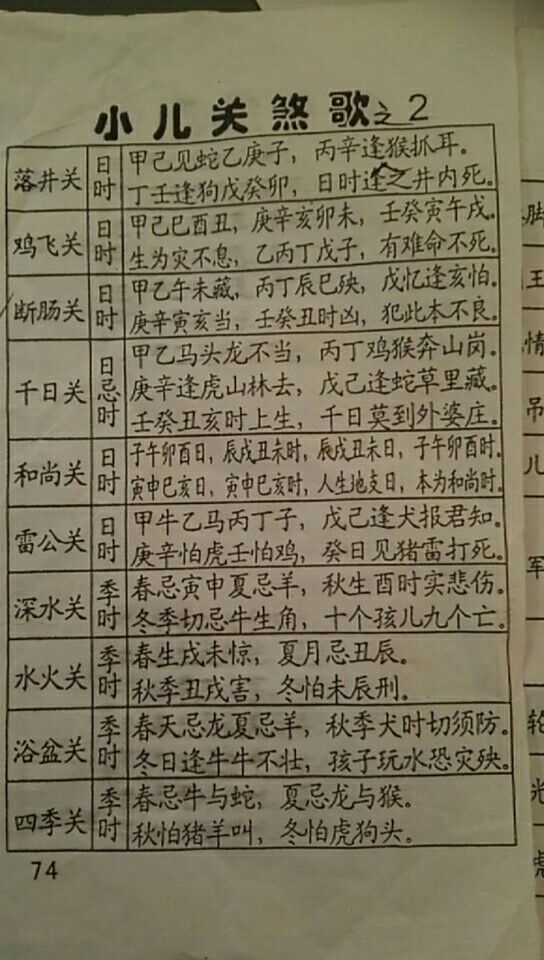 小儿关煞歌之2
落井关
日时
甲己见蛇乙庚子，丙辛逢猴抓耳。
丁壬逢狗戊癸卯，日时逢之井内死。
鸡飞关
日时
甲己巳酉丑，庚辛亥卯未，壬癸寅午戌。
生为灾不息，乙丙丁戊子，有难命不死。
断肠关
日时
甲乙午未藏，丙丁辰巳殃，戊忆逢亥怕。
庚辛寅亥当，壬癸丑时凶，犯此本不良。
千日关
日忌时
甲乙马头龙不当，丙丁鸡猴奔山岗。
庚辛逢虎山林去，戊己逢蛇草里藏。
壬癸丑亥时上生，千日莫到外婆庄。
和尚关
日时
子午卯酉日，辰戌丑未时，辰戌丑未日，子午卯酉时。
寅申巳亥日，寅申巳亥时，人生地支日，本为和尚时。
雷公关
日时
甲牛乙马丙丁子，戊己逢犬报君知。
庚辛怕虎壬怕鸡，癸日见猪雷打死。
深水关
季时
春忌寅申夏忌羊，秋生酉时实悲伤。
冬季切忌牛生角，十个孩儿九个亡。
水火关
季时
春生戌未惊，夏月忌丑辰。
秋季丑戌害，冬怕未辰刑。
浴盆关
季时
春天忌龙夏忌羊，秋季犬时切须防。
冬日逢牛牛不壮，孩子玩水恐灾殃。
四季关
季时
春忌牛与蛇，夏忌龙与猴。
秋怕猪羊叫，冬怕虎狗头。
74
脚
王
情
吊
儿
军
轮
光